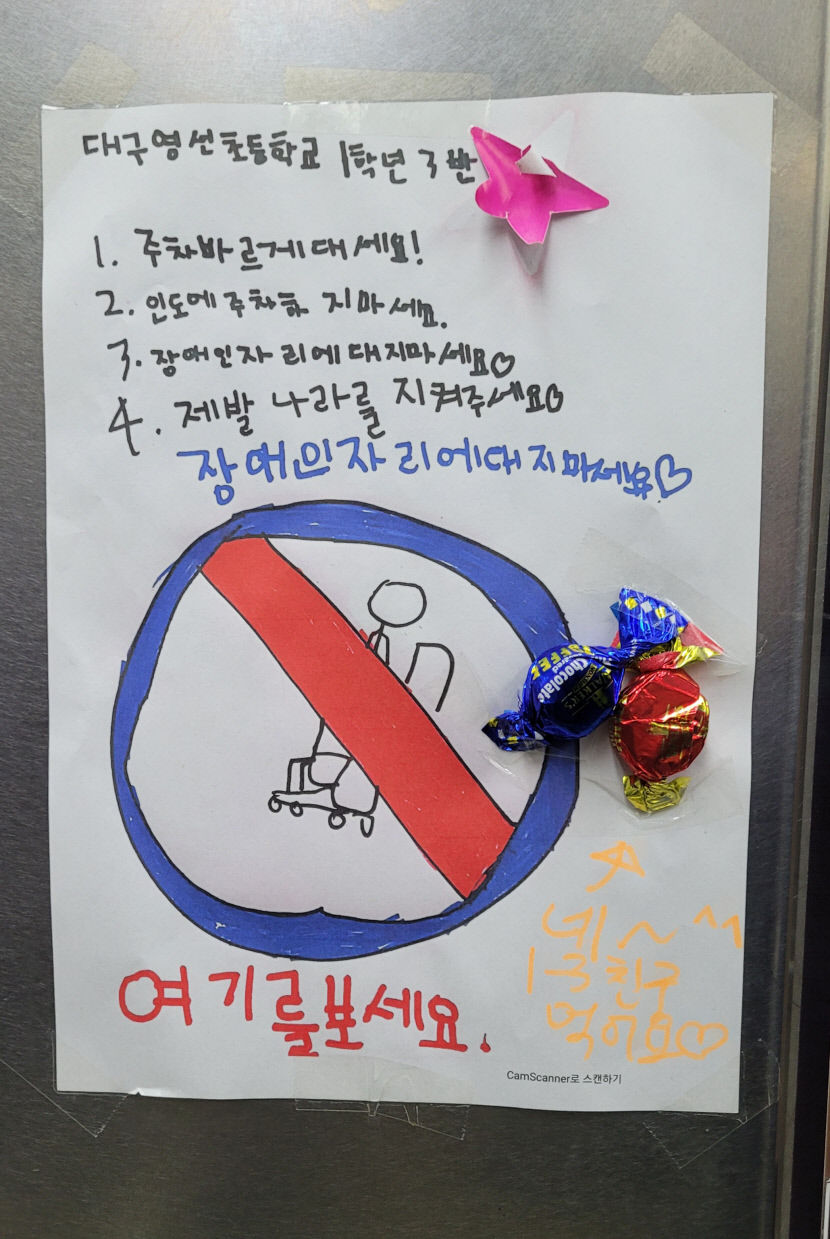 대구영선초등학교 1학년 3반
1. 주차바르게대세요!
2. 인도에주차하 지마세요.
3. 장애인자리에대지마세요♡
4. 제발 나라를 지켜주세요♡
장애인자리에대지마세요♡
Chocolate
TOFFEE
네~ ^^
1-3 친구
먹어요♡
여기를보세요.
CamScanner로 스캔하기